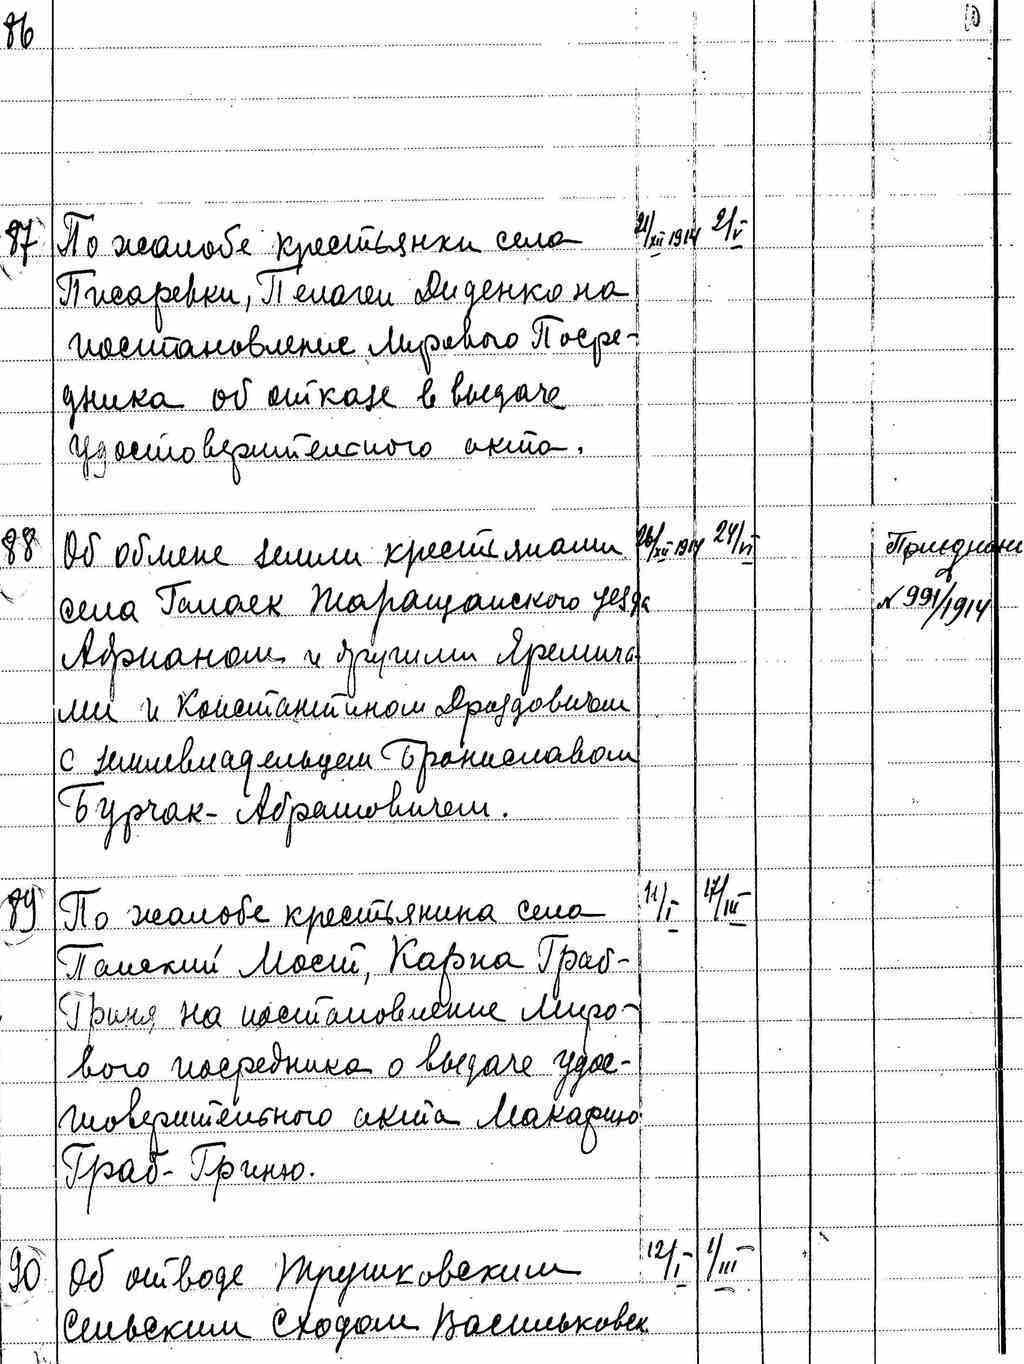 86
87 По жалобе крестьянки села 21/XII 1914 2/V
Писаревки, Пелагеи Диденко на
постановление Мирового Посре-
дника об отказе в выдаче
удостоверительного акта.
88 Об обмене земли крестьянами 26/XII 1914 24/VI
села Галаек Таращанского уезда № 991/1914
Адрианом и другими Яремича-
ми и Константином Дроздовичем
с землевладельцем Брониславом
Бурчак-Абрамовичем.
89 По жалобе крестьянина села 11/I 17/III
Панский Мост, Карпа Граб-
Гриня, на постановление Миро-
вого посредника о выдаче удос-
товерительного акта Макарию
Граб-Гриню.
90 Об отводе Трушковским 12/I 1/III
Сельским Сходом Васильковск